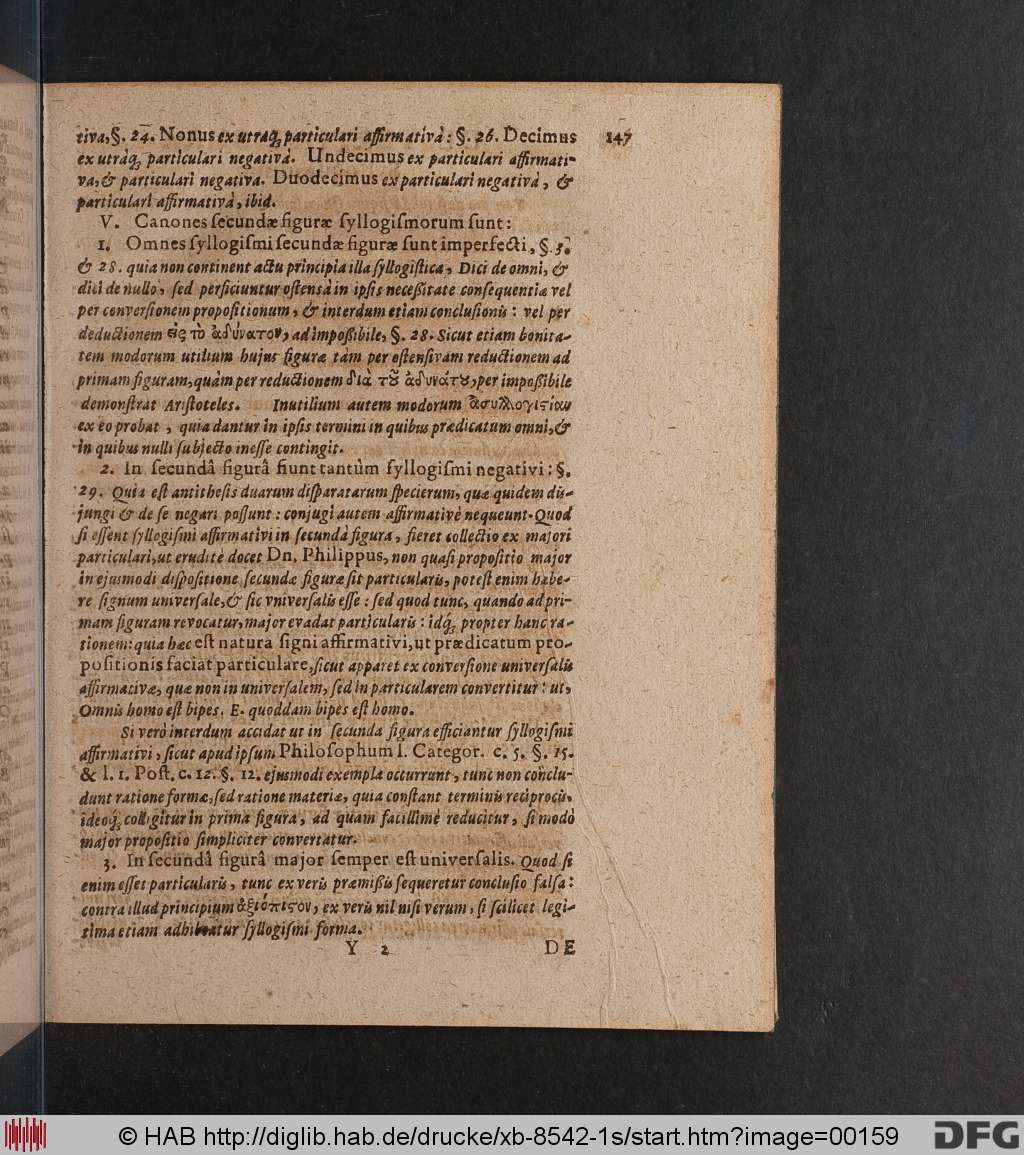 tiva, §. 24. Nonus ex utraq́; particulari affirmativâ: §. 26. Decimus 147
ex utrâq́; particulari negativâ. Undecimus ex particulari affirmati-
va, & particulari negativa. Duodecimus ex particulari negativâ, &
particulari affirmativâ, ibid.
V. Canones ſecundæ figuræ ſyllogiſmorum ſunt:
1. Omnes ſyllogiſmi ſecundæ figuræ ſunt imperfecti, §. 5.
& 28. quia non continent actu principia illa ſyllogiſtica, Dici de omni, &
dici de nullo, ſed perficiuntur oſtensâ in ipſis neceßitate conſequentiæ vel
per converſionem propoſitionum, & interdum etiam concluſionis: vel per
deductionem εἰς τὸ ἀδύνατον, ad impoßibile, §. 28. Sicut etiam bonita-
tem modorum utilium hujus figuræ tàm per oſtenſivam reductionem ad
primam figuram, quàm per reductionem διὰ τȣ͂ ἀδυνάτȣ, per impoßibile
demonſtrat Ariſtoteles. Inutilium autem modorum ἀσυλλογιςίαν
ex eo probat, quia dantur in ipſis termini in quibus prædicatum omni, &
in quibus nulli ſubjecto ineſſe contingit.
2. In ſecundâ figurâ fiunt tantùm ſyllogiſmi negativi: §.
29. Quia eſt antitheſis duarum diſparatarum ſpecierum, quæ quidem diſ-
jungi & de ſe negari poſſunt: conjugi autem affirmativè nequeunt. Quod
ſi eſſent ſyllogiſmi affirmativi in ſecundâ figura, fieret collectio ex majori
particulari, ut eruditè docet Dn. Philippus, non quaſi propoſitio major
in ejusmodi diſpoſitione ſecundæ figuræ ſit particularis, poteſt enim habe-
re ſignum univerſale, & ſic vniverſalis eſſe: ſed quod tunc, quando ad pri-
mam figuram revocatur, major evadat particularis: idq́; propter hanc ra-
tionem: quia hæc eſt natura ſigni affirmativi, ut prædicatum pro-
poſitionis faciat particulare, ſicut apparet ex converſione univerſalis
affirmativæ, quæ non in univerſalem, ſed in particularem convertitur: ut,
Omnis homo eſt bipes. E. quoddam bipes eſt homo.
Si verò interdum accidat ut in ſecunda figura efficiantur ſyllogiſmi
affirmativi, ſicut apud ipſum Philoſophum l. Categor. c. 5. §. 15.
& l. 1. Poſt. c. 12. §. 12. ejusmodi exempla occurrunt, tunc non conclu-
dunt ratione formæ, ſed ratione materiæ, quia conſtant terminis reciprocis,
ideoq́; colligitur in prima figura, ad quam facillimè reducitur, ſi modò
major propoſitio ſimpliciter convertatur.
3. In ſecundâ figurâ major ſemper eſt univerſalis. Quod ſi
enim eſſet particularis, tunc ex veris præmißis ſequeretur concluſio falſa:
contra illud principium ἀξιόπιςον, ex veris nil niſi verum, ſi ſcilicet legi-
tima etiam adhibeatur ſyllogiſmi forma.
Y 2 DE
© HAB http://diglib.hab.de/drucke/xb-8542-1s/start.htm?image=00159 DFG